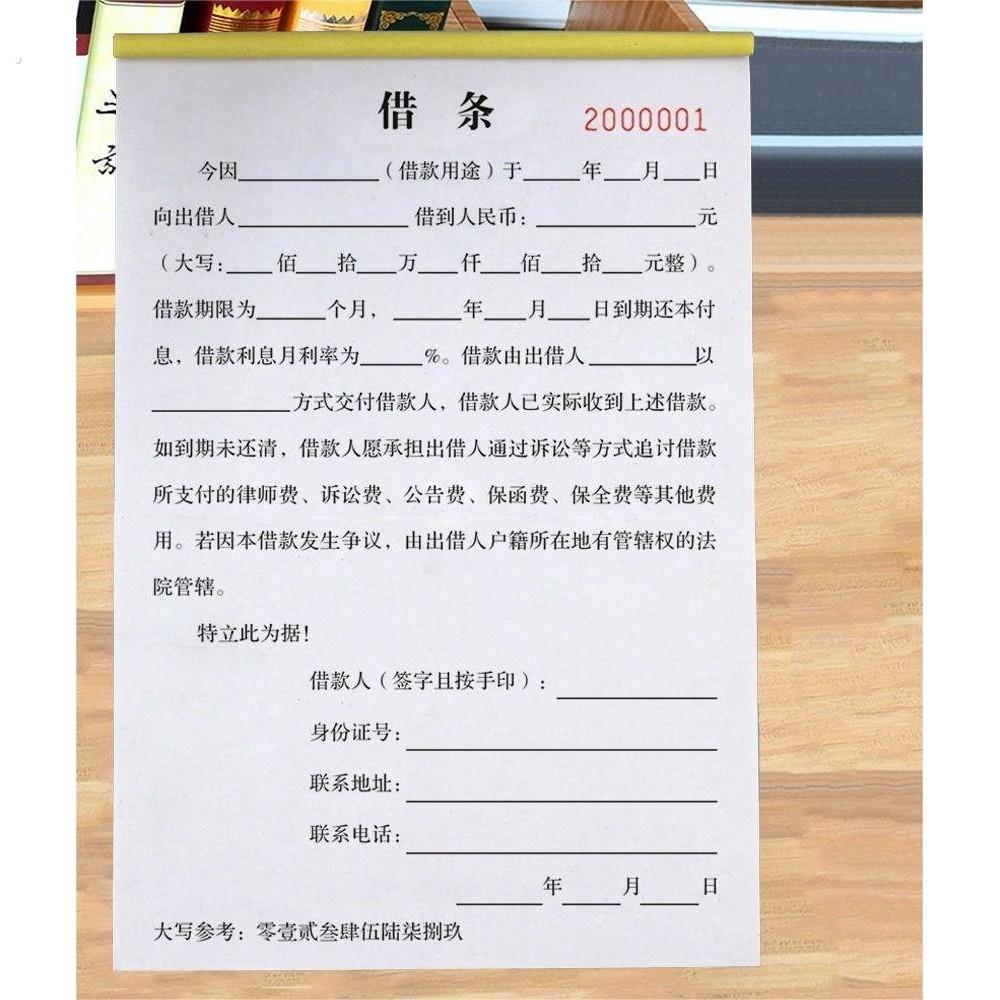 借 条
2000001
今因____________（借款用途）于_____年___月___日
向出借人_______________ 借到人民币：______________元
（大写：____佰___拾___万___仟___佰___拾___元整）。
借款期限为______个月，______年___月___日到期还本付
息，借款利息月利率为_____%。借款由出借人_________以
____________方式交付借款人，借款人已实际收到上述借款。
如到期未还清，借款人愿承担出借人通过诉讼等方式追讨借款
所支付的律师费、诉讼费、公告费、保函费、保全费等其他费
用。若因本借款发生争议，由出借人户籍所在地有管辖权的法
院管辖。
特立此为据！
借款人（签字且按手印）：______________
身份证号：___________________________
联系地址：___________________________
联系电话：___________________________
_______年_____月_____日
大写参考：零壹贰叁肆伍陆柒捌玖